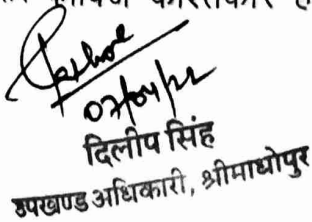 07/04/22
दिलीप सिंह
उपखण्ड अधिकारी, श्रीमाधोपुर